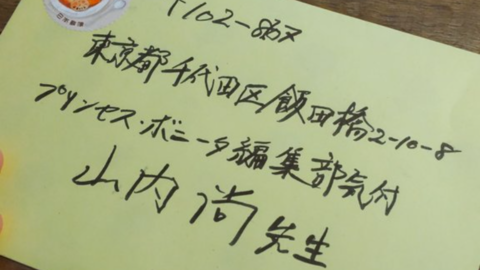 〒102-8
東京都千代田区飯田橋2-10-8
プリンセス・ボニータ編集部気付
山内尚先生